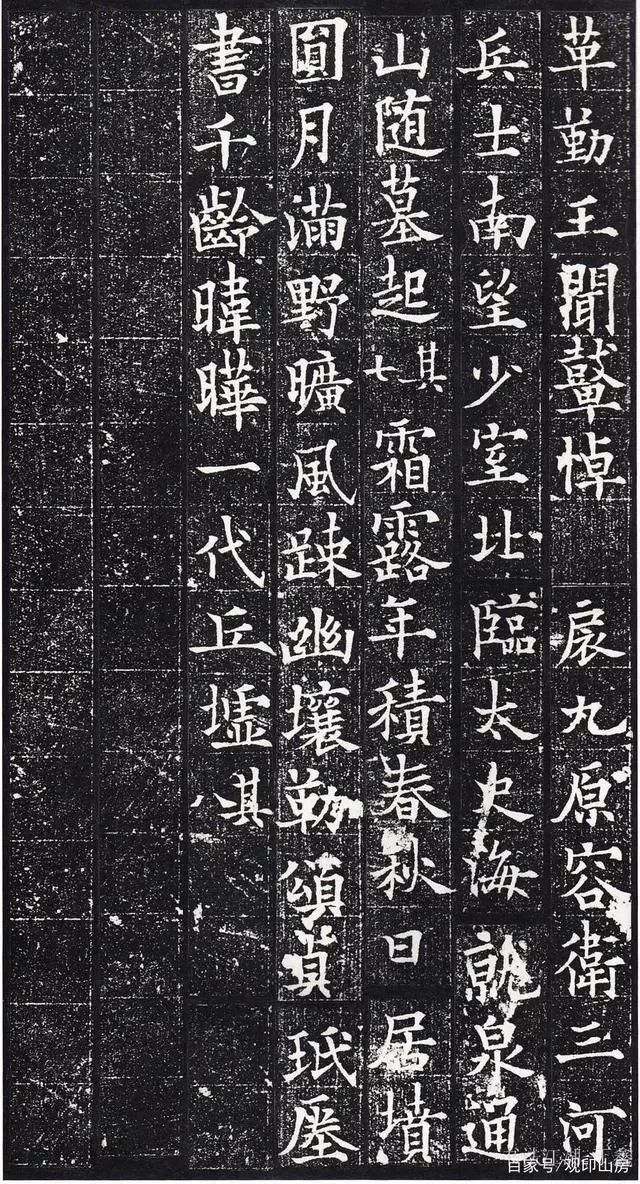 革勤王聞鼙悼扆九原容衛三河
兵士南望少室北臨太史海就泉通
山随墓起其七霜露年積春秋日居墳
圓月滿野曠風踈幽壤勒頌貞珉
書千齡暐曄一代丘墟其八
百家号/观印山房